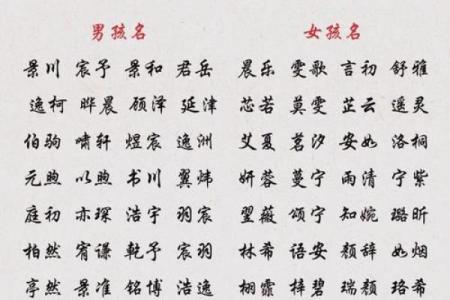 男孩名 女孩名
景川 宸予 景和 君岳 晨乐 雯歌 言初 舒雅
逸柯 晔晨 顾泽 延津 芯若 莫雯 芷云 遥灵
伯驹 啸轩 煜宸 逸洲 艾夏 茗汐 安如 洛桐
元煦 以煦 书川 翼炜 妍蓉 蔓宁 雨清 宁紫
庭初 亦琛 浩宇 羽宸 翌薇 颂宁 知婉 璐昕
柏然 宥谦 乾予 宸羽 林希 语安 颜辞 如烟
亭然 景淮 铭博 浩逸 栩霏 梓碧 瑞颜 珞希